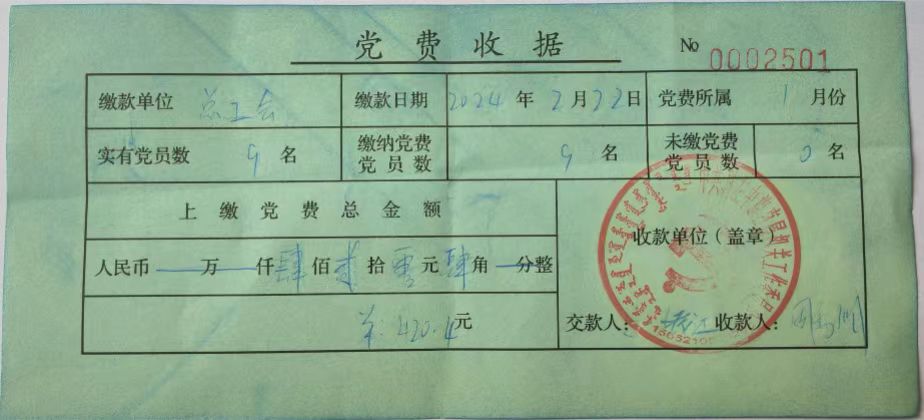 党费收据
No 0002501
缴款单位 总工会 缴款日期 2024年2月22日 党费所属 1月份
实有党员数 9名 缴纳党费党员数 9名 未缴党费党员数 0名
上缴党费总金额
人民币 万 仟肆佰贰拾零元肆角 分整
收款单位(盖章)
420.4元
交款人: 收款人: